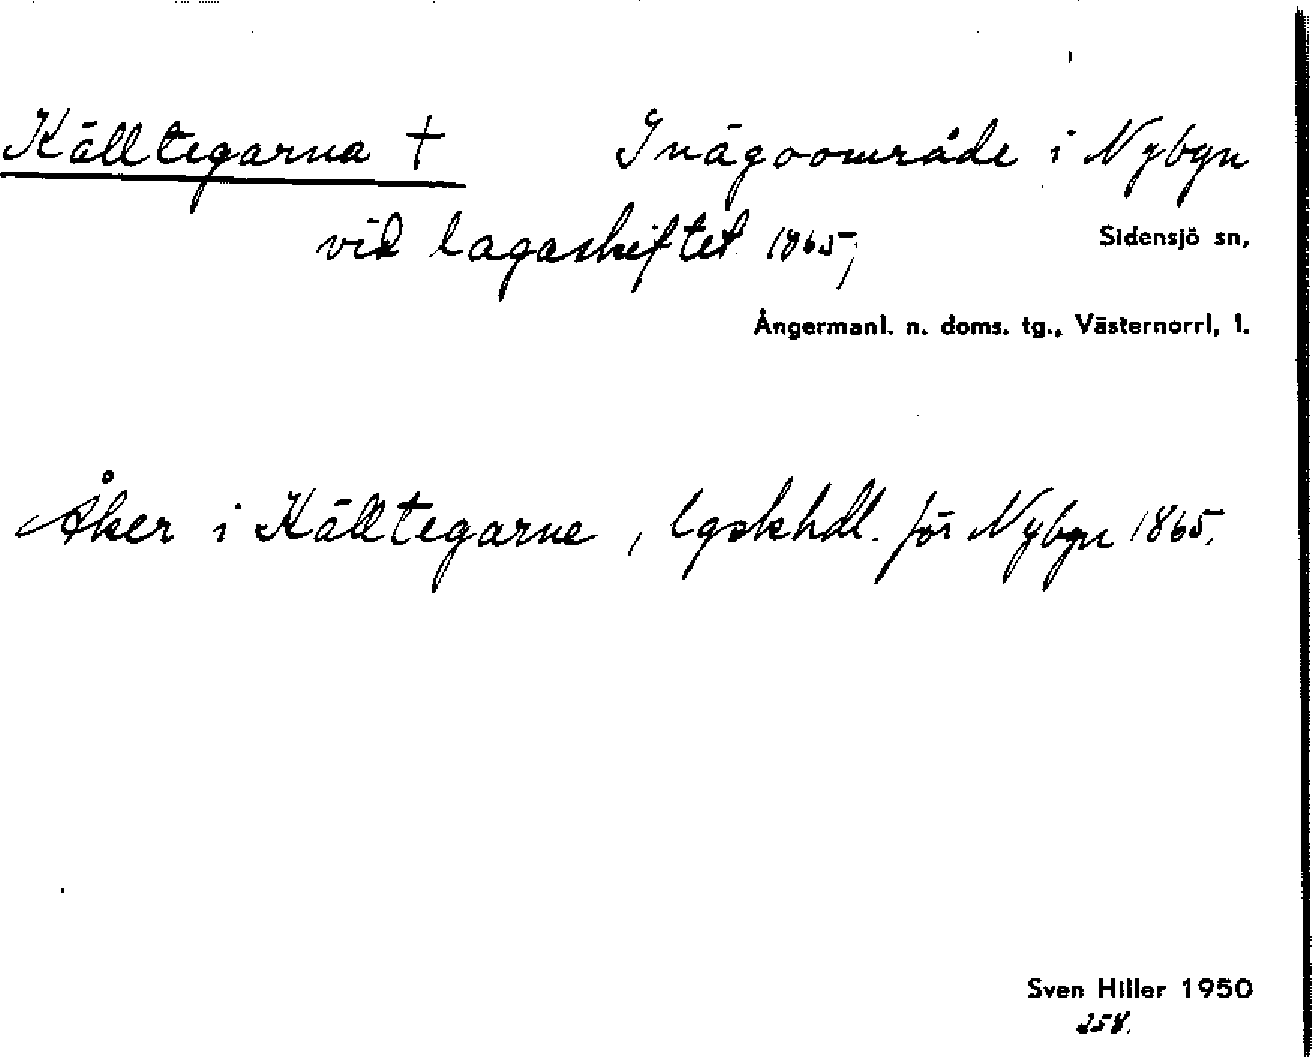 Källtegarna † Inägoområde i Nybyn
vid lagaskiftet 1865,
Sidensjö sn,
Ångermanl. n. doms. tg., Västernorrl, l.
Åker i Källtegarne, lgskhdl. för Nybyn 1865.
Sven Hiller 1950
258.